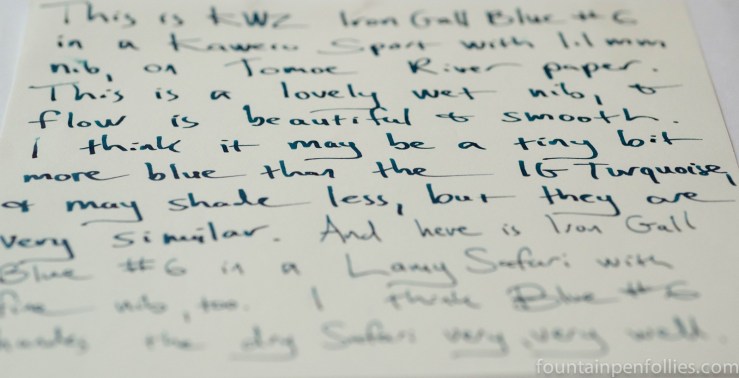 This is KWZ Iron Gall Blue #6
in a Kaweco Sport with 1.1 mm
nib, on Tomoe River paper.
This is a lovely wet nib, &
flow is beautiful & smooth.
I think it may be a tiny bit
more blue than the IG Turquoise,
& may shade less, but they are
very similar. And here is Iron Gall
Blue #6 in a Lamy Safari with
fine nib, too. I think Blue #6
the dry Safari very, very well.
fountainpenfollies.com